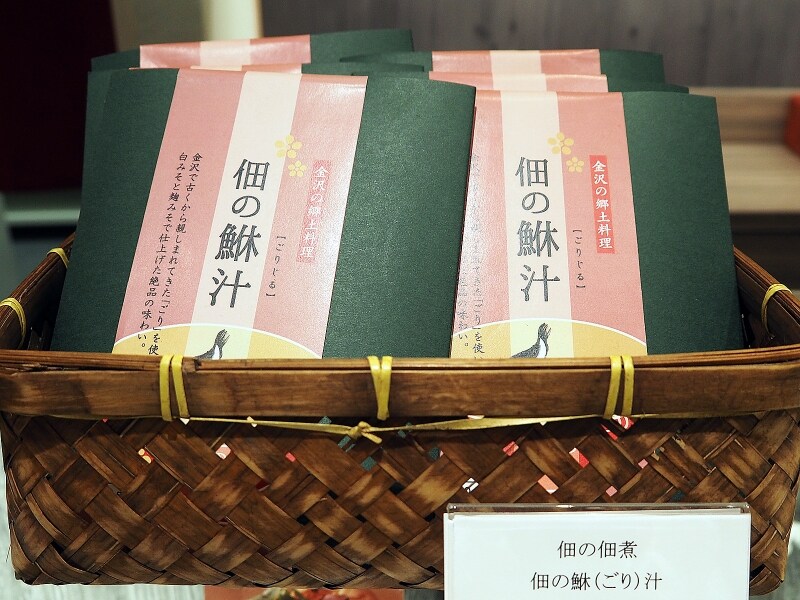 金沢の郷土料理
佃の鮴汁
【ごりじる】
金沢で古くから親しまれてきた「ごり」を使
白みそと麹みそで仕上げた絶品の味わい。
金沢の郷土料理
佃の鮴汁
【ごりじる】
てきた「ごり」を使
品の味わい。
佃の佃煮
佃の鮴(ごり)汁